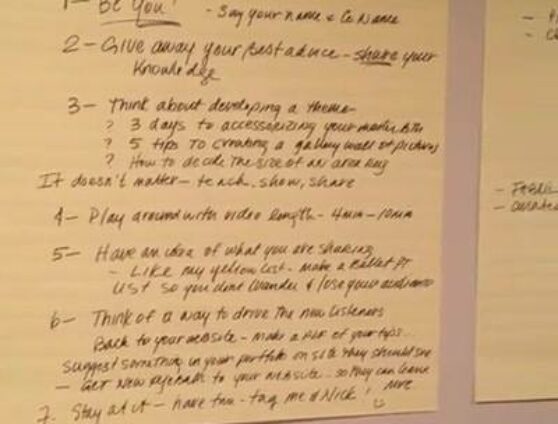 1- Be You! - Say your name & Co Name
2- Give away your Best advice - share your
Knowledge
3- Think about developing a theme-
? 3 days to accessorizing your
? 5 tips To creating a gallery wall of pictures
? How to decide The size of an area Rug
It doesn't matter- teach, show, share
4- Play around with video length - 4min - 10min
5- Have an idea of what you are sharing
- Like my yellow list - make a Bullet PT
List so you dont wander & lose your audience
6- Think of a way to drive the new listeners
Back to your website - make a PDF of your tips..
suggest something in your portfolio on site they should see
- Get new to your website - so they can learn
more
7. Stay at it - have fun - tag me & Nick!
- Fabric